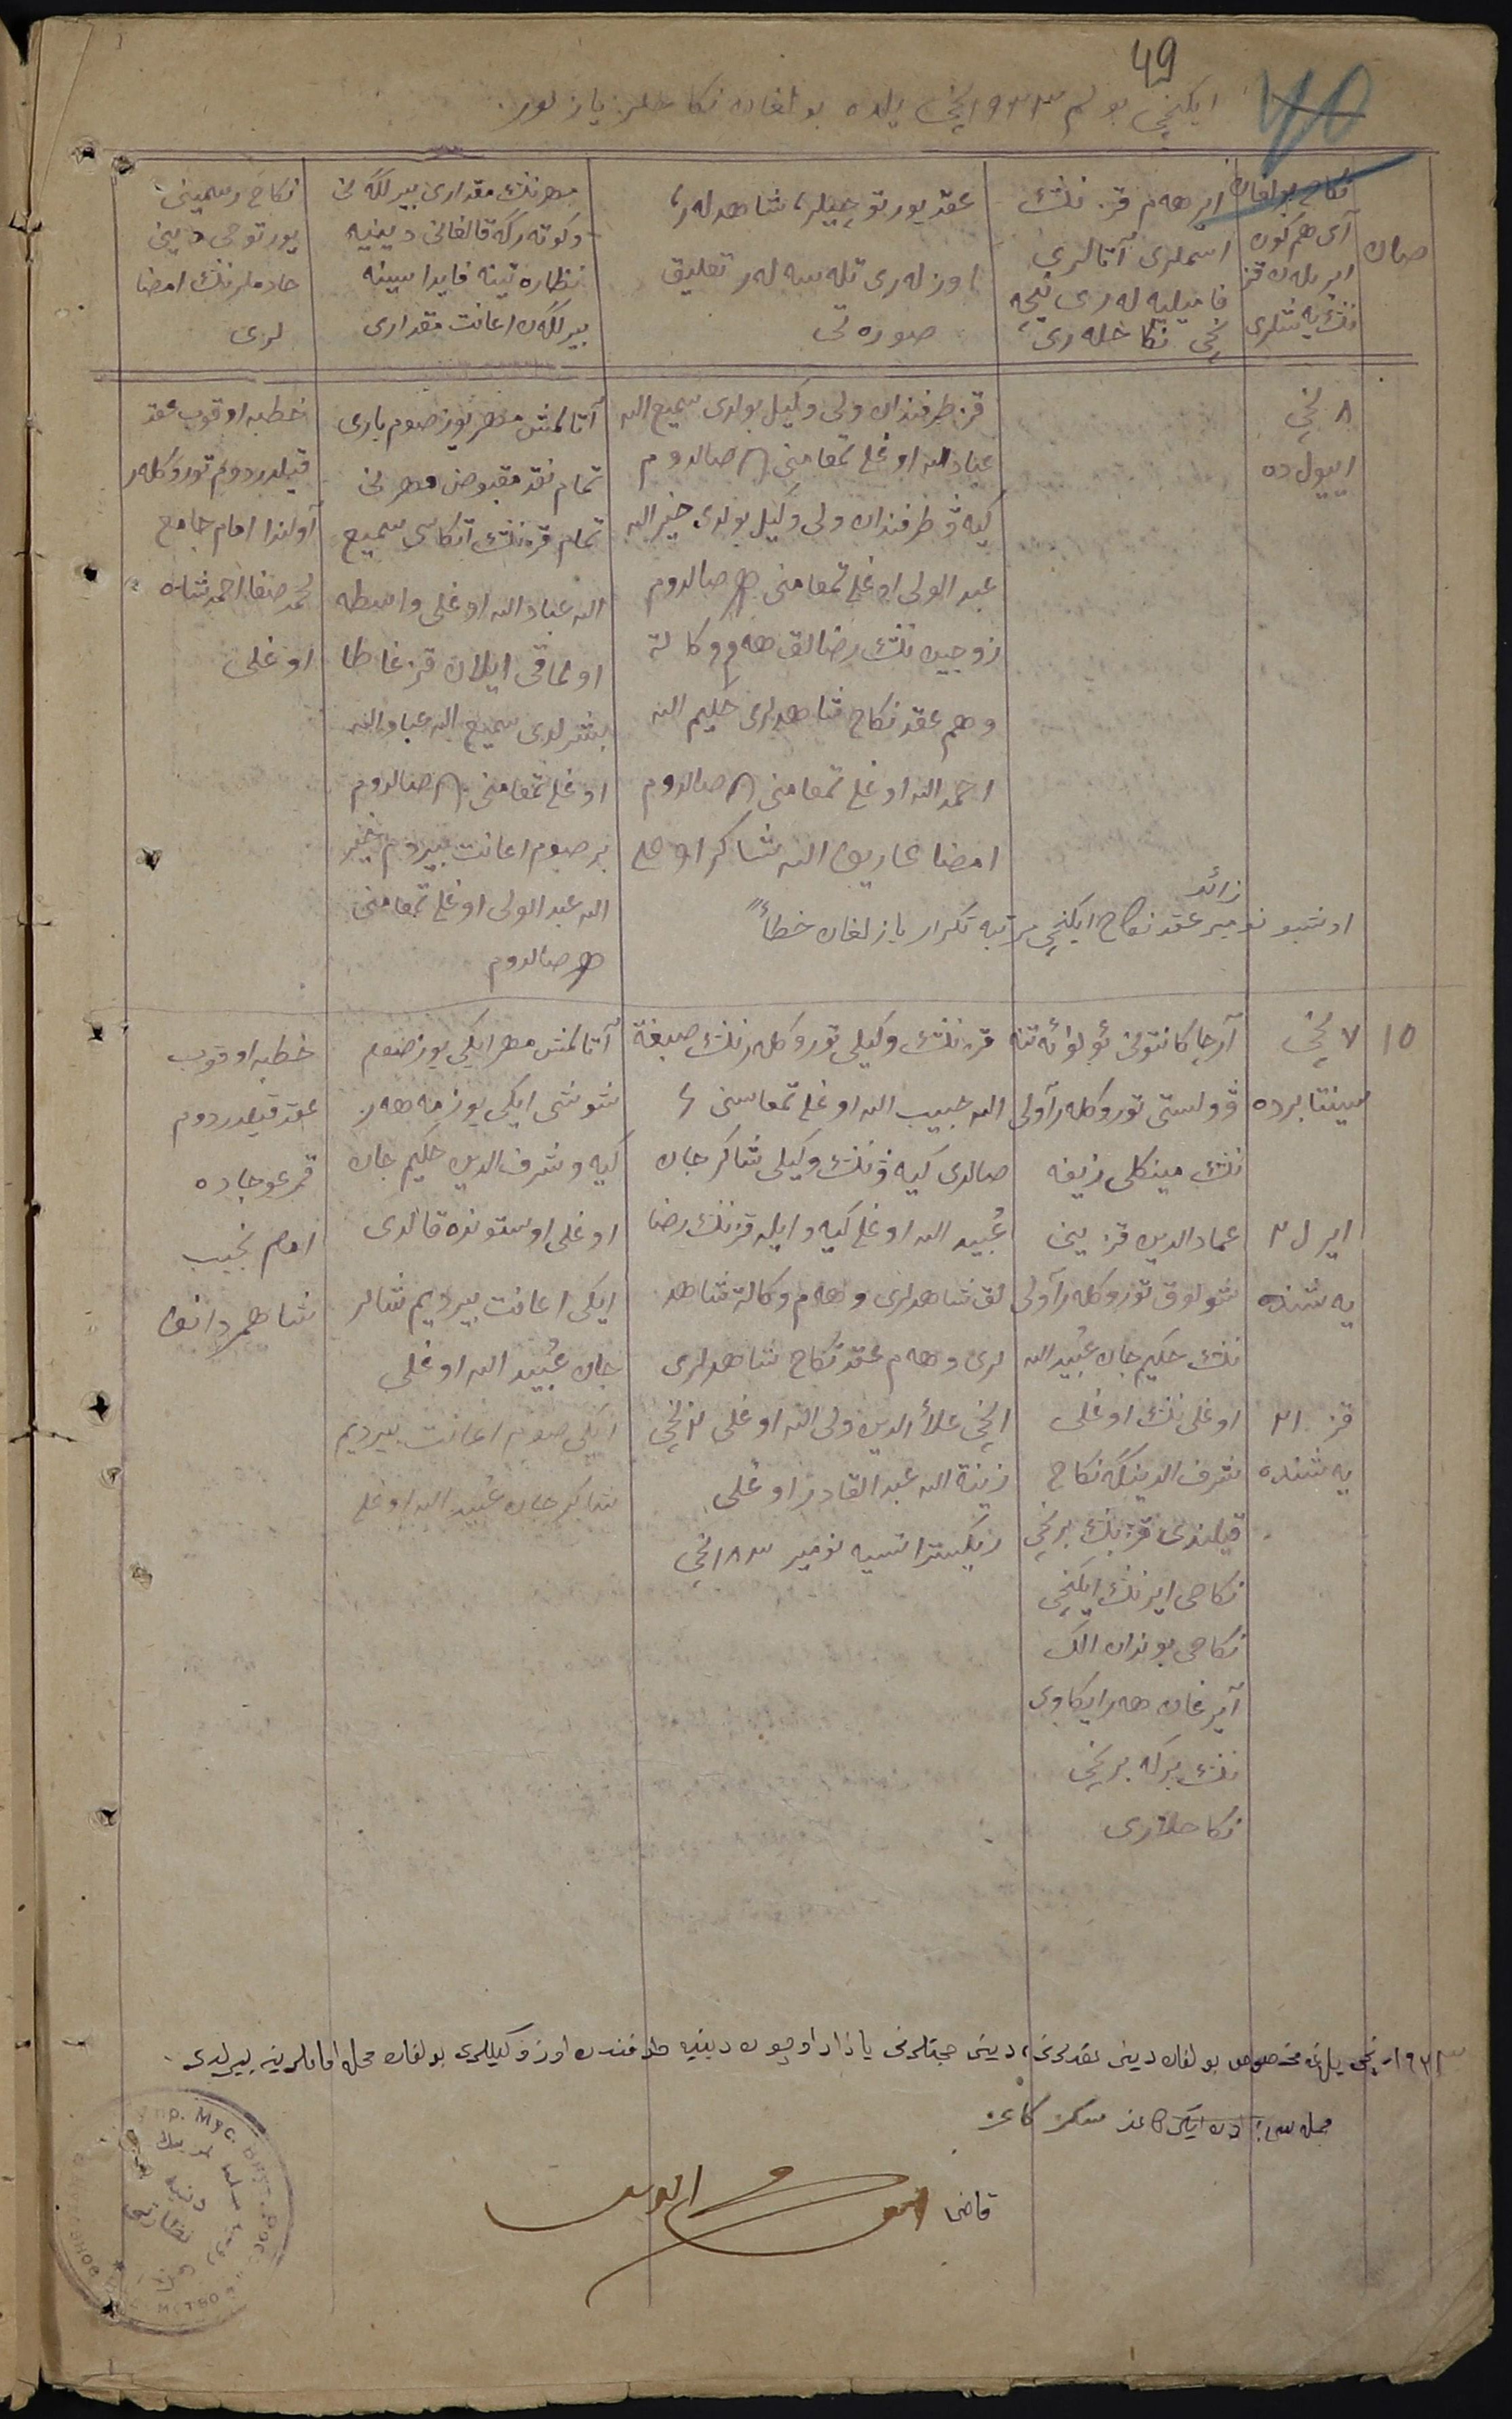 49
40
ایکنچی بولم ۱۹۲۳نچی یلده بولغان نکاحلر یازلور
صان
نکاح بولغان
آی هم کون
ایر بلەن قز
ننڭ یەشلری
ایر هەم قز ننڭ
اسملری آتالری
فامیلیە لەری نیچە
نچی نکاحلەری
عقد یورتوچیلر، شاهدلەر،
اوزلەری تلەسەلەر تعلیق
صورەتی
مهرننڭ مقداری بیرلگەنی
وکوتەرگە قالغانی دینیە
نظارەتینە فایداسینە
بیرلگەن اعانت مقداری
نکاح رسمینی
یورتوچی دینی
خادملرننڭ امضا
لری
۸ نچی
اییول دە
قز طرفندان ولی وکیل بولدی سمیع الله
عباد الله اوغلی تمغامنی صالدوم
کیەۋ طرفندان ولی وکیل بولدی خیر الله
عبد الولی اوغلی تمغامنی صالدوم
زوجین ننڭ رضالق هەم وکالة
وهم عقد نکاح شاهدلری حلیم الله
احمد الله اوغلی تمغامنی صالدوم
امضا عاریف الله شاکر اوغلی
آتالمش مهر یوز صوم باری
تمام نقد مقبوض مهر نی
تمام قزننڭ آتاکاسی سمیع
الله عباد الله اوغلی واسطە
اولماقی ایلان قزغا طا
بشرلدی سمیع الله عباد الله
اوغلی تمغامنی صالدوم
بر صوم اعانت بیردم خیر
الله عبد الولی اوغلی تمغامنی
صالدوم
خطبە اوقوب عقد
قیلدردوم توروکلەر
آولندا امام جامع
محمد صفا احمد شاە
اوغلی
زائد
اوشبو نومیر عقد نکاح ایکنچی مرتبە تکرار یازلغان خطأً
۱۵
۷ نچی
سینتابردە
ایر ۲
یەشندە
قز ۲۱
یەشندە
آرچا کانتونی
ۋولستی توروکلەر آولی
ننڭ مینکلی زیفە
عماد الدین قزینی
شولوق توروکلەر آولی
ننڭ حکیم جان عُبید الله
اوغلی ننڭ اوغلی
شرف الدینگە نکاح
قیلندی قزننڭ برنچی
نکاحی ایرننڭ ایکنچی
نکاحی بوندان الک
آیرغان هەر ایکاوی
ننڭ برگە برنچی
نکاحلاری
قزننڭ وکیلی توروکلەرننڭ صبغة
الله حبیب الله اوغلی تمغاسنی
صالدی کیەۋننڭ وکیلی شاکر جان
عُبید الله اوغلی کیەو ایلە قزننڭ رضا
لق شاهدلری وهەم وکالة شاهد
لری وهەم عقد نکاح شاهدلری
۱نچی علاء الدین ولی الله اوغلی ۲نچی
زینة الله عبد القادر اوغلی
ریگیستراتسیە نومیر ۱۸۳نچی
آتالمش مهر ایکی یوز صوم
شوشی ایکی یوز مەهەر
کیەو شرف الدین حکیم جان
اوغلی اوستوندە قالدی
ایکی اعانت بیردیم شاکر
جان عُبید الله اوغلی
ایکی صوم اعانت بیردیم
شاکر جان عُبید الله اوغلی
خطبە اوقوب
عقد قیلدردوم
امام نجیب
۱۹۲۳نچی یلغە مخصوص بولغان دینی عقدلرنی، دینی جهتلرنی یازار اوچون دینیە طرفندن اوز وکیللری بولغان محلە اماملرینە بیرلدی
جملەسی: اون ایکی کاغذ سکز کاغذ
قاضی
دینیە
نظارتی